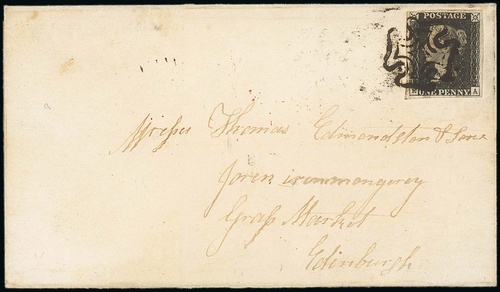 POSTAGE
ONE PENNY A
Messrs Thomas Edmondston & Sons
ironmongerey
Grass Market
Edinburgh